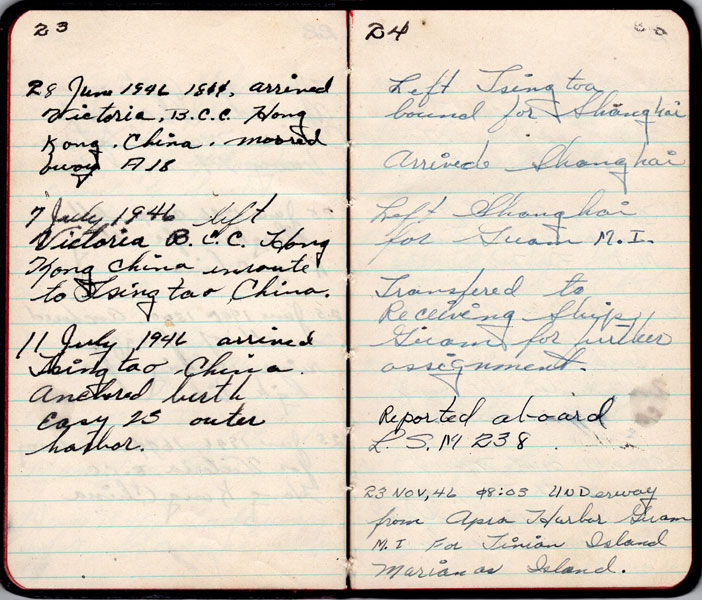 23
28 June 1946 , arrived
Victoria, B.C.C. Hong
Kong, China. moored
buoy A18
7 July 1946 left
Victoria B.C.C. Hong
Kong China inroute
to Tsingtao China.
11 July 1946 arrived
Tsingtao China.
Anchored birth
Easy 25 outer
harbor.
24
Left Tsingtao
bound for Shanghai
Arrived Shanghai
Left Shanghai
for Guam M.I.
Transfered to
Receiving Ship
Guam for further
assignment.
Reported aboard
L.S.M 238
23 NOV, 46 08:03 UNDerway
from Apra Harbor Guam
M.I For Tinian Island
Marianas Island.